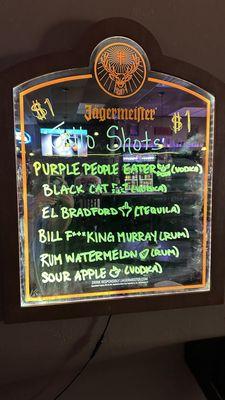 Jägermeister
$1 $1
Shots
PURPLE PEOPLE EATER (VODKA)
BLACK CAT (VODKA)
EL BRADFORD (TEQUILA)
BILL F***KING MURRAY (RUM)
RUM WATERMELON (RUM)
SOUR APPLE (VODKA)
DRINK RESPONSIBLY